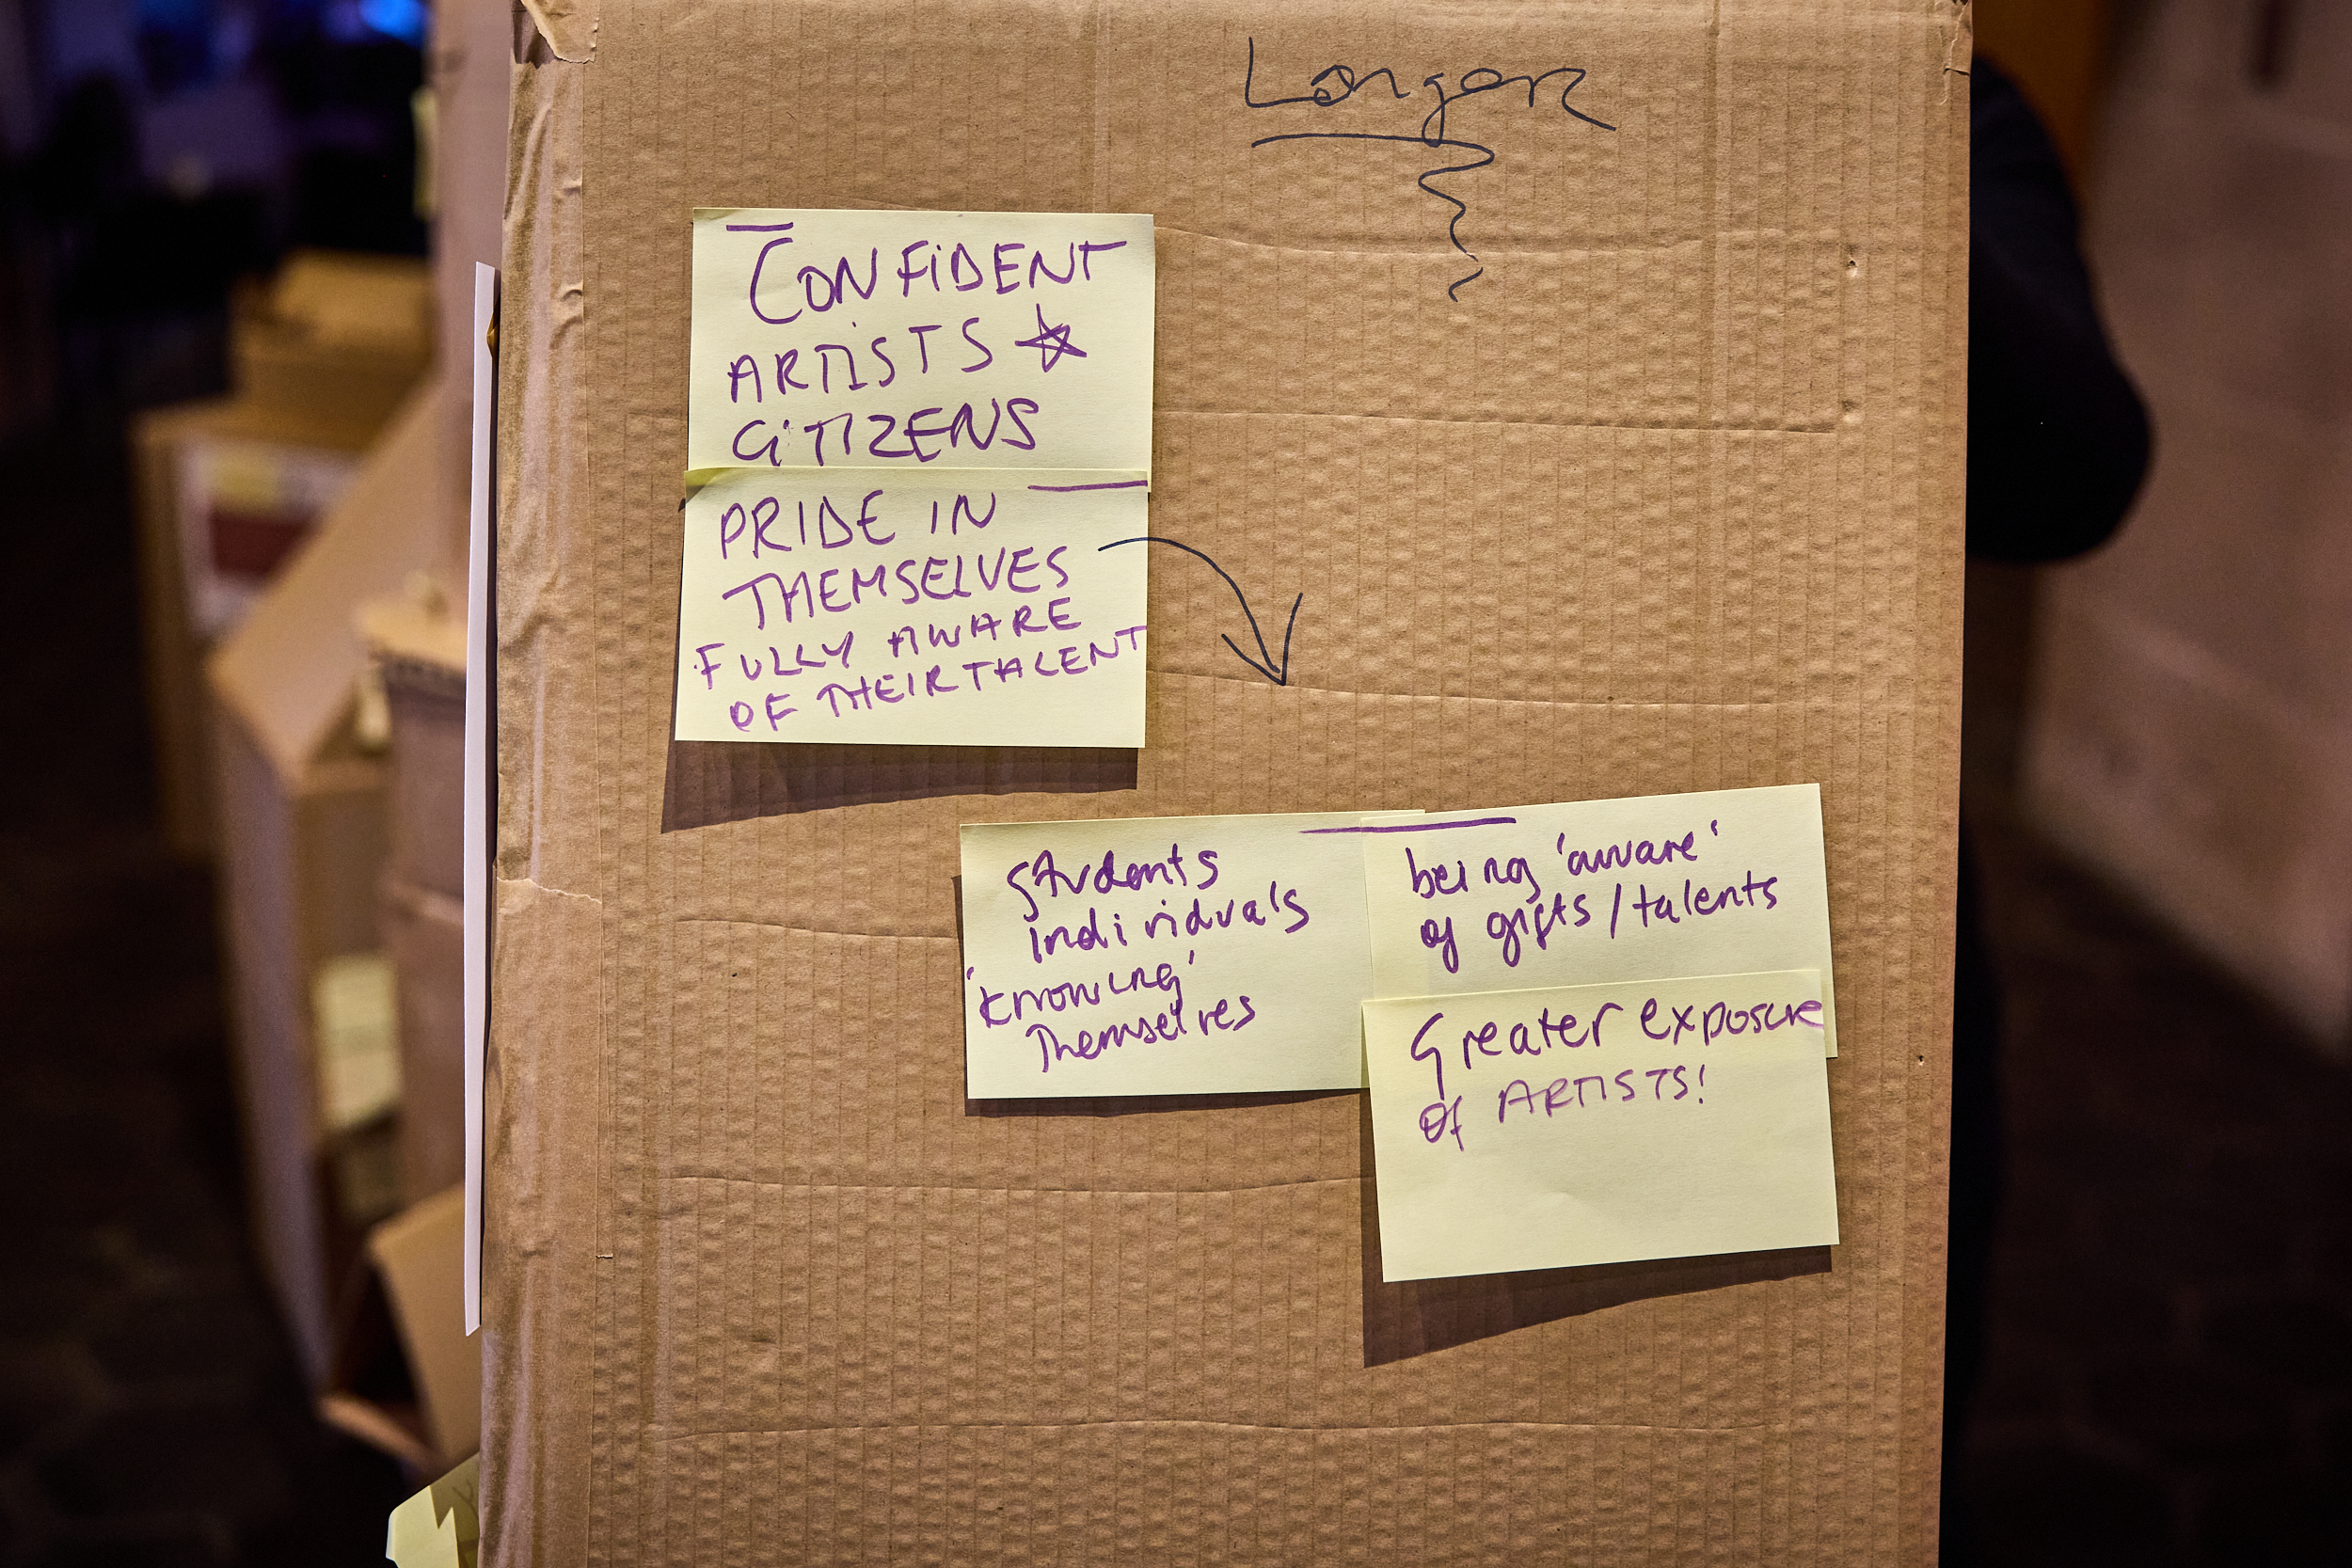 Longer
CONFIDENT
ARTISTS
CITIZENS
PRIDE IN
THEMSELVES
FULLY AWARE
OF THEIR TALENT
Students
individuals
'knowing'
Themselves
being 'aware'
of gifts / talents
Greater exposure
of ARTISTS!